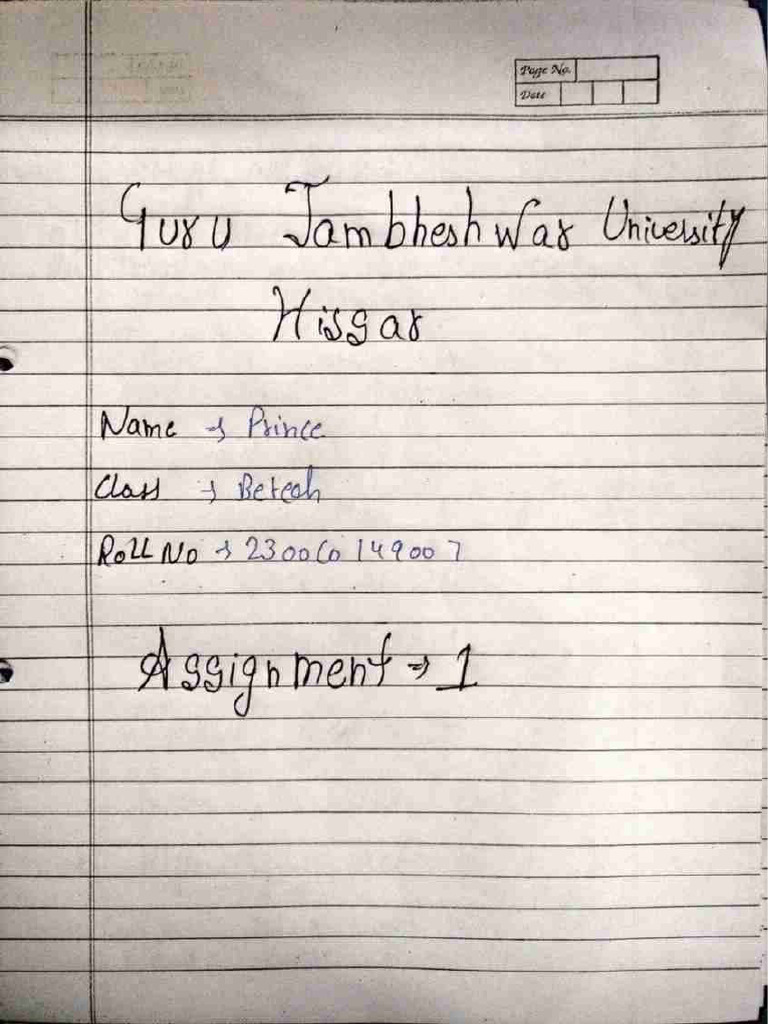 Page No.
Date
Guru Jambheshwar University
Hissar
Name → Prince
Class → Betech
Roll No → 2300
Assignment → 1